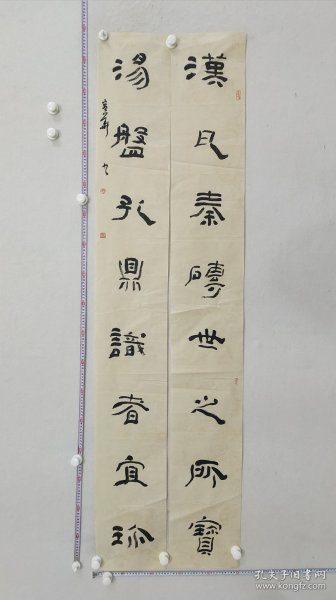 漢瓦秦磚世之所寶
湯盤孔鼎識者宜珍
孔夫子旧书网